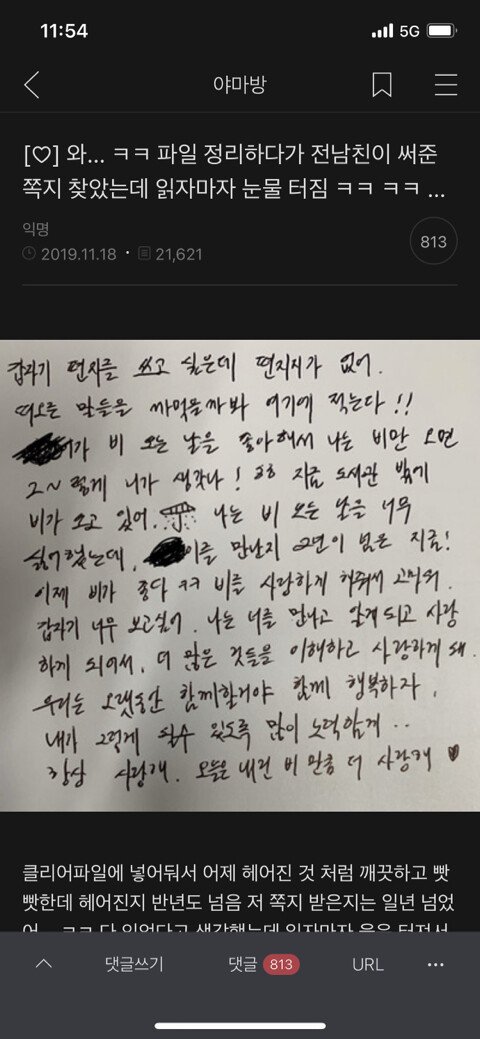 11:54
5G
야마방
[♡] 와... ㅋㅋ 파일 정리하다가 전남친이 써준
쪽지 찾았는데 읽자마자 눈물 터짐 ㅋㅋ ㅋㅋ ...
익명
2019.11.18 · 21,621
813
갑자기 편지를 쓰고 싶은데 편지지가 없어.
떠오른 말들을 까먹을까봐 여기에 적는다!!
가 비 오는 날을 좋아해서 나는 비만 오면
그~렇게 니가 생각나! 지금 도서관 밖에
비가 오고 있어. 나는 비 오는 날을 너무
싫어했는데, 이를 만난지 2년이 넘은 지금!
이제 비가 좋다 ㅋㅋ 비를 사랑하게 해줘서 고마워.
갑자기 너무 보고싶어. 나는 너를 만나고 알게되고 사랑
하게 되어서, 더 많은 것들을 이해하고 사랑하게 돼.
우리는 오랫동안 함께할거야 함께 행복하자.
내가 그렇게 될수 있도록 많이 노력할게..
항상 사랑해. 오늘은 내린 비 만큼 더 사랑해 ♥
클리어파일에 넣어둬서 어제 헤어진 것 처럼 깨끗하고 빳
빳한데 헤어진지 반년도 넘음 저 쪽지 받은지는 일년 넘었
댓글쓰기
댓글 813
URL